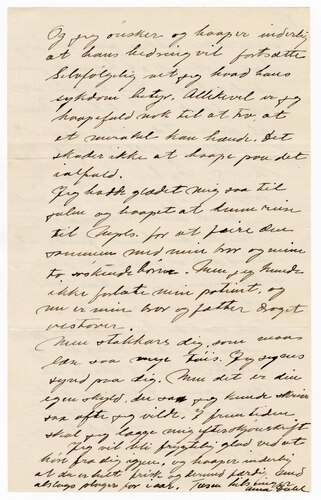 Og jeg ønsker og haaper inderlig
at hans bedring vil fortsætte
Selvfølgelig vet jeg hvad hans
sykdom betyr. Allikevel er jeg
haapefuld nok til at tro at
et mirakel kan hænde. Det
skader ikke at haape paa det
ialfald.
Jeg hadde glædet mig saa til
jul og haapet at kunne
til Mpls. for at feire den
sammen med min bror og mine
to søskendebørn. Men jeg kunde
ikke forlate min patient, og
nu er min bror og father draget
vestover.
Men stakkars dig, som maa
læse saa meget. Jeg synes
synd paa dig. Men det er din
egen skyld, du sa jeg kunde skrive
saa ofte jeg vilde. I fremtiden
skal jeg lægge mig efterskjønskrift
Jeg vil bli frygtelig glad ved at
høre fra dig igjen, og haaper inderlig
at du er helt frisk og
for iaar. Tusen hilsninger